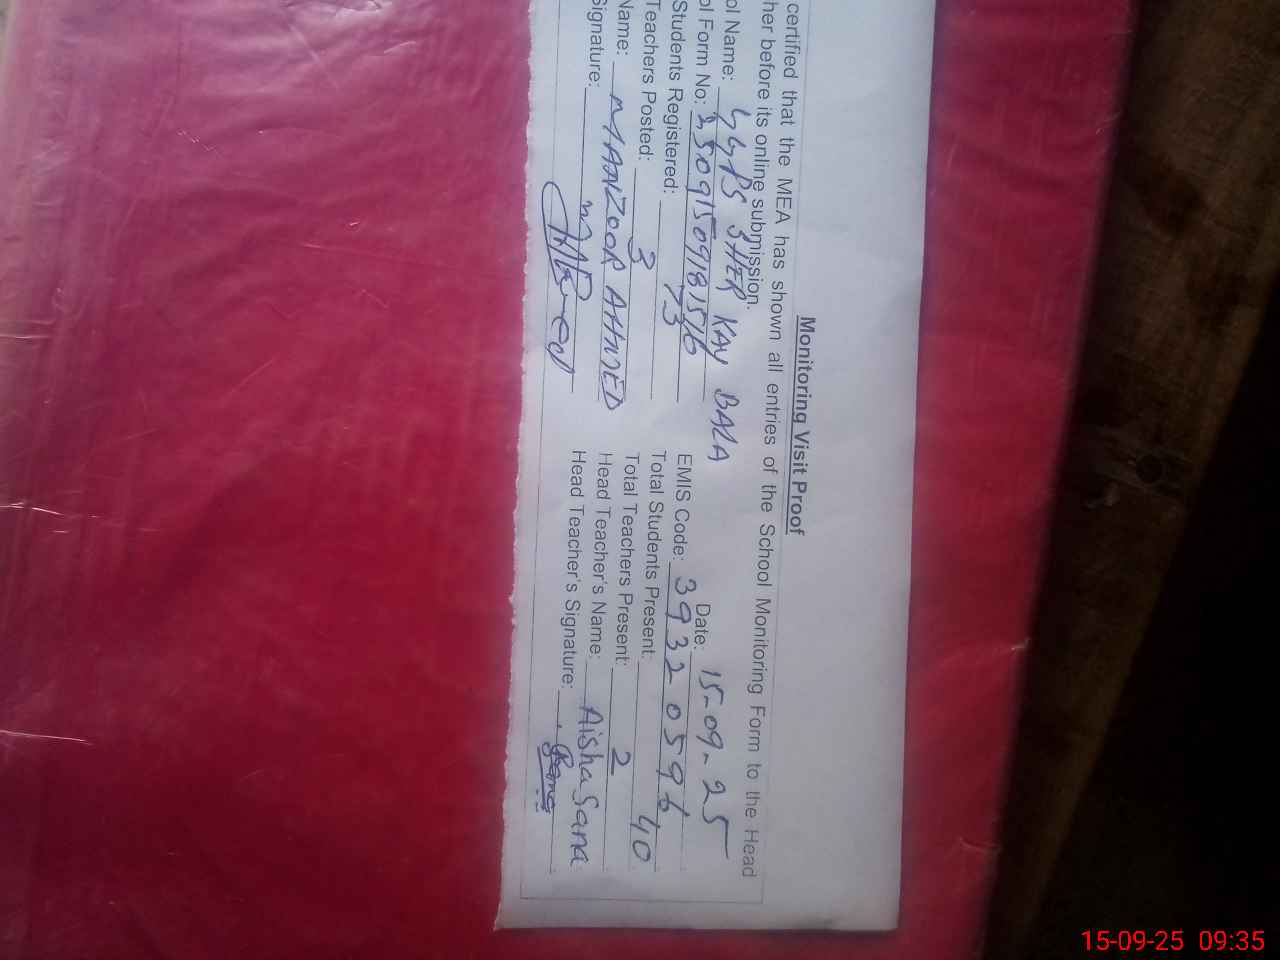 Monitoring Visit Proof
certified that the MEA has shown all entries of the School Monitoring Form to the Head
her before its online submission.
ol Name: GGPS SHER KAY BALA Date: 15-09-25
ol Form No: EMIS Code: 39320596
Students Registered: 73 Total Students Present: 40
Teachers Posted: 3 Total Teachers Present: 2
Name: MANZOOR AHMED Head Teacher's Name: Aisha Sana
Signature: MAhmed Head Teacher's Signature:
15-09-25 09:35